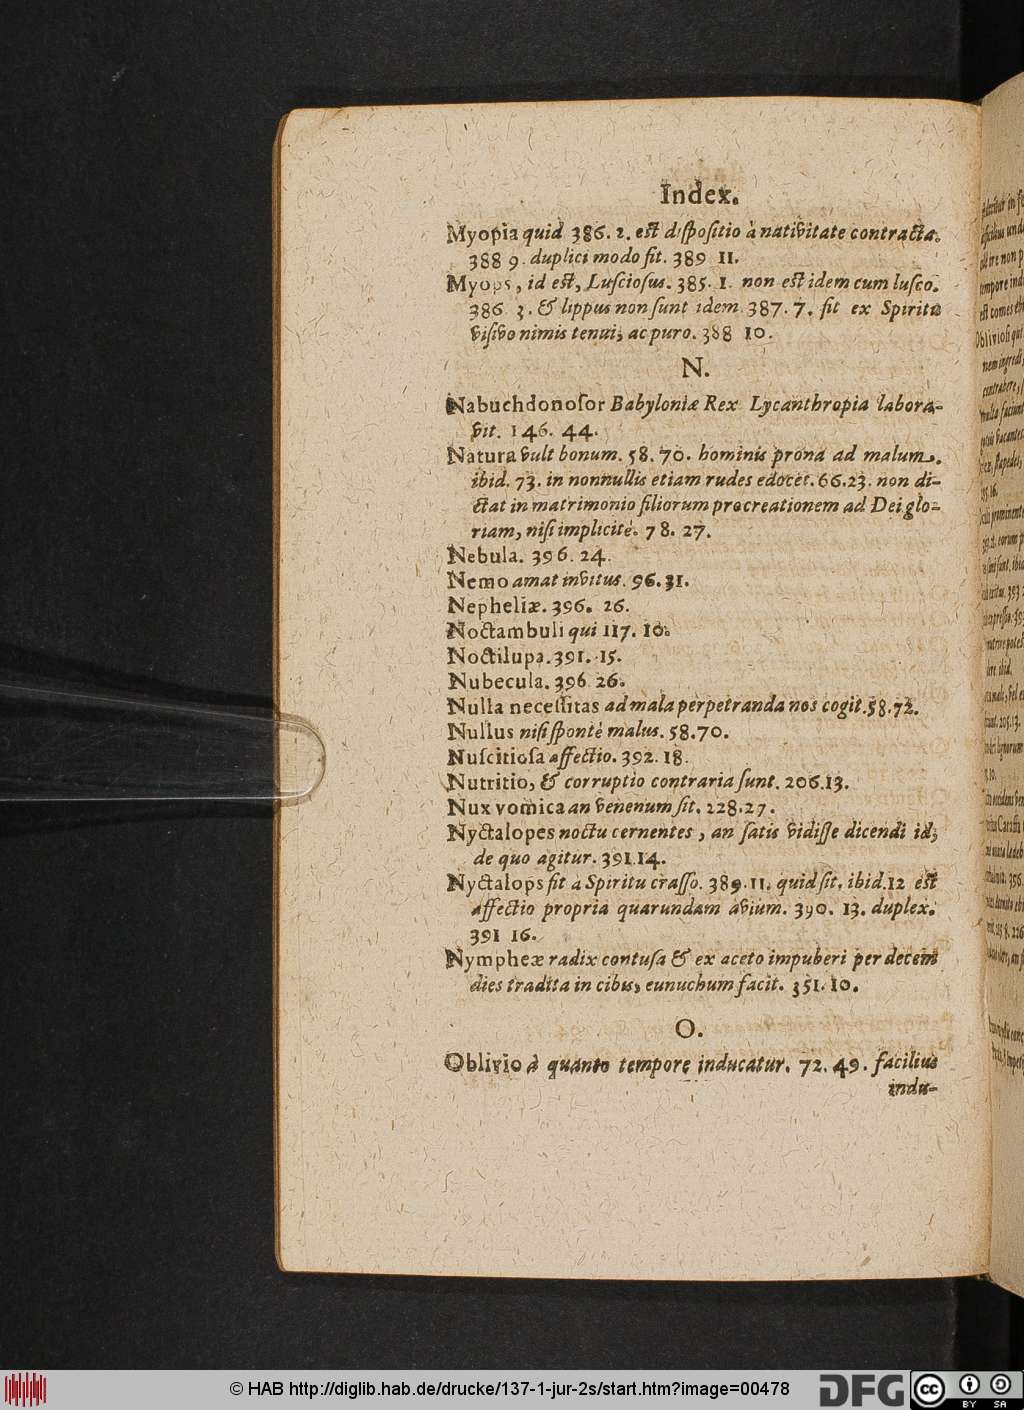 Index.
Myopia quid 386. 2. est dispositio à nativitate contracta.
388 9. duplici modo fit. 389 11.
Myops, id est, Lusciosus. 385. 1. non est idem cum lusco.
386. 3. & lippus non sunt idem. 387. 7. fit ex Spiritu
visivo nimis tenui, ac puro. 388 10.
N.
Nabuchdonosor Babyloniæ Rex Lycanthropia labora-
vit. 146. 44.
Natura vult bonum. 58. 70. hominis prona ad malum.
ibid. 73. in nonnullis etiam rudes edocet. 66. 23. non di-
ctat in matrimonio filiorum procreationem ad Dei glo-
riam, nisi implicitè. 78. 27.
Nebula. 396. 24.
Nemo amat invitus. 96. 31.
Nepheliæ. 396. 26.
Noctambuli qui 117. 10.
Noctilupa. 391. 15.
Nubecula. 396 26.
Nulla necessitas ad mala perpetranda nos cogit. 58. 72.
Nullus nisi spontè malus. 58. 70.
Nuscitiosa affectio. 392. 18.
Nutritio, & corruptio contraria sunt. 206. 13.
Nux vomica an venenum sit. 228. 27.
Nyctalopes noctu cernentes, an satis vidisse dicendi id,
de quo agitur. 391 14.
Nyctalops fit à Spiritu crasso. 389. 11. quid sit. ibid. 12 est
affectio propria quarundam avium. 390. 13. duplex.
391 16.
Nympheæ radix contusa & ex aceto impuberi per decem
dies tradita in cibis, eunuchum facit. 351. 10.
O.
Oblivio à quanto tempore inducatur. 72. 49. facilius
indu-
© HAB http://diglib.hab.de/drucke/137-1-jur-2s/start.htm?image=00478
DFG
cc BY SA